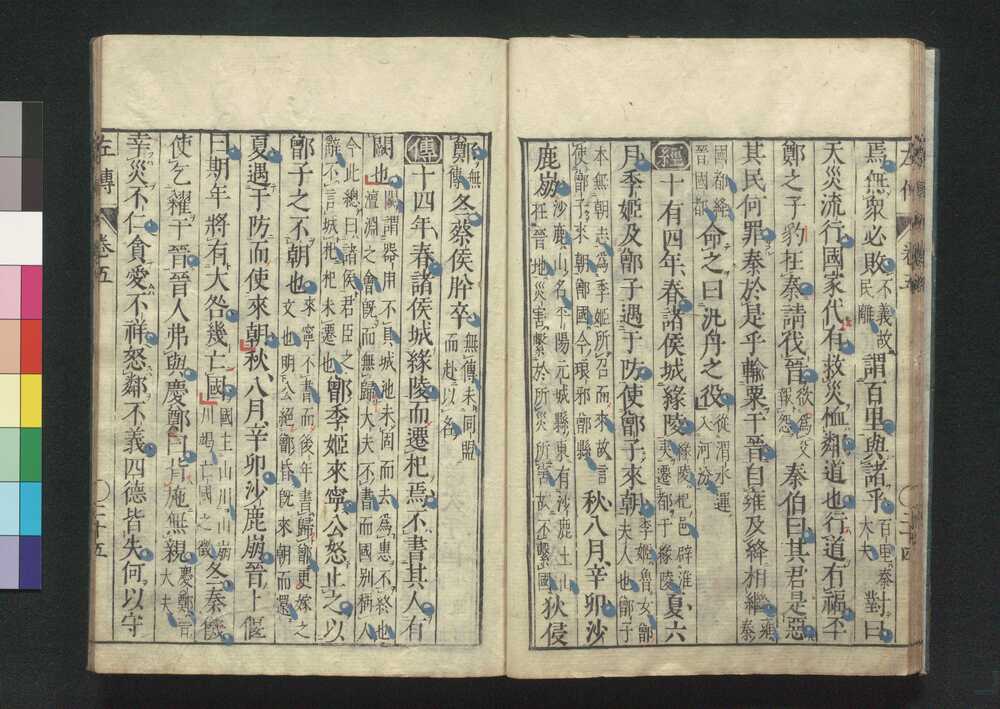 左傳 卷五 〇二十四
焉無衆必敗不義故民離謂百里與諸乎百里秦大夫對曰
天災流行國家代有救災恤鄰道也行道有福㔻
鄭之子豹在秦請伐晉欲爲父報怨秦伯曰其君是惡
其民何罪秦於是乎輸粟于晉自雍及絳相繼雍秦
國都絳晉國都命之曰汎舟之役從渭水運入河汾
經十有四年春諸侯城緣陵緣陵杞邑辟淮夷遷都于緣陵夏六
月季姬及鄫子遇于防使鄫子來朝季姬魯女鄫夫人也鄫子
本無朝志爲季姬所召而來故言使鄫子來朝鄫國今琅邪鄫縣秋八月辛卯沙
鹿崩沙鹿山名平陽元城縣東有沙鹿土山在晉地災害繫於所災所害故不繫國狄侵
鄭無傳冬蔡侯肸卒無傳未同盟而赴以名
傳十四年春諸侯城緣陵而遷杞焉不書其人有
闕也闕謂器用不具城池未固而去爲惠不終也澶淵之會旣而無歸大夫不書而國别稱人
今此總曰諸侯君臣之辭不言城杞杞未遷也鄫季姬來寧公怒止之以
鄫子之不朝也來寧不書而後年書歸鄫更嫁之文也明公絶鄫昏旣來朝而還
夏遇于防而使來朝秋八月辛卯沙鹿崩晉卜偃
曰期年將有大咎幾亡國國主山川山崩川竭亡國之徵冬秦饑
使乞糴于晉晉人弗與慶鄭曰背施無親慶鄭晉大夫
幸災不仁貪愛不祥怒鄰不義四德皆失何以守
左傳 卷五 〇二十五